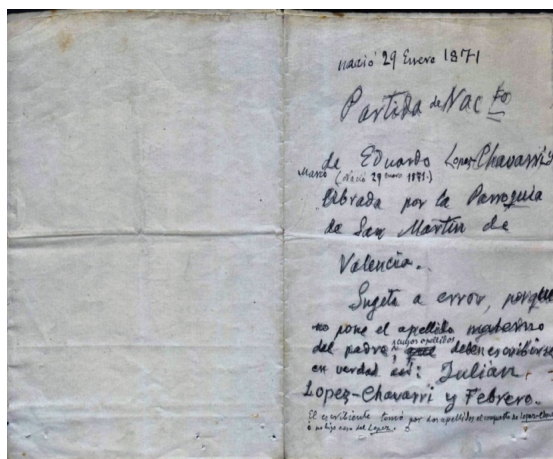 nació 29 Enero 1871
Partida de Nacto
de Eduardo Lopez-Chavarri y
Marco (Nació 29 enero 1871.)
librada por la Parroquia
de San Martin de
Valencia.
Sugeta a error, porque
no pone el apellido materno
del padre, cuyos apellidos deben escribirse
en verdad así: Julian
Lopez-Chavarri y Febrero.
El escribiente tomó por dos apellidos el compuesto de Lopez-Chavarri
ó no hizo caso del Lopez.